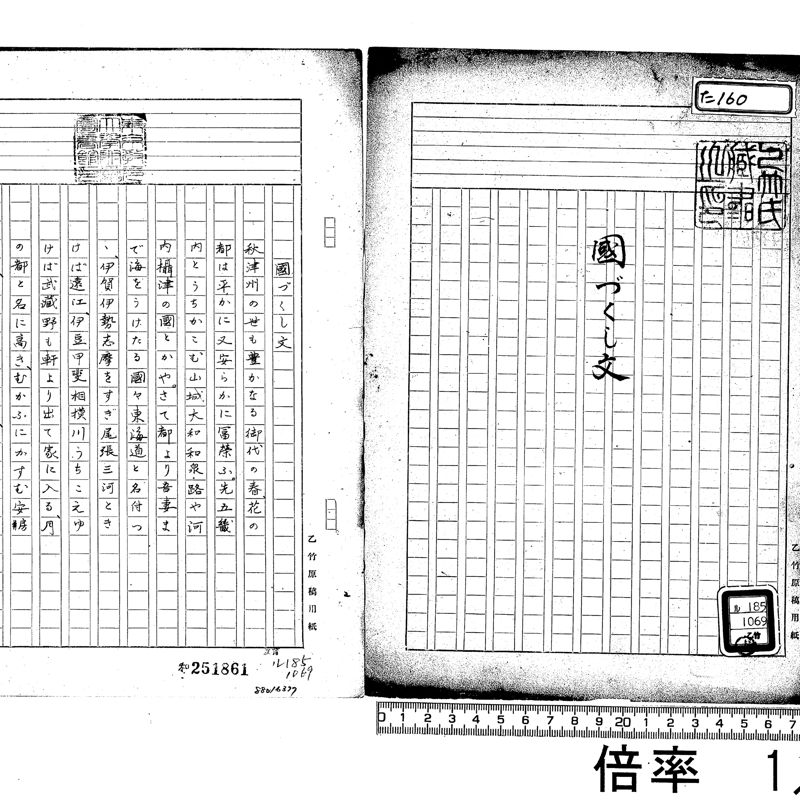 た160
國づくし文
ル 185
1069
乙竹
乙竹原稿用紙
國づくし文
秋津州の世も豊かなる御代の春、花の
都は平かに又安らかに冨榮ふ。先五畿
内とうちかこむ山城大和和泉路や河
内攝津の國とかや。さて都より吾妻ま
で海をうけたる國々東海道と名付つ
ゝ、伊賀伊勢志摩をすぎ尾張三河とき
けば遠江、伊豆甲斐相摸川うちこえゆ
けば武藏野も軒より出て家に入る、月
の都と名に高き、むかふにかすむ安房
乙竹原稿用紙
和251861
ル185
1069
88016377
0 1 2 3 4 5 6 7 8 9 20 1 2 3 4 5 6 7
倍率 1